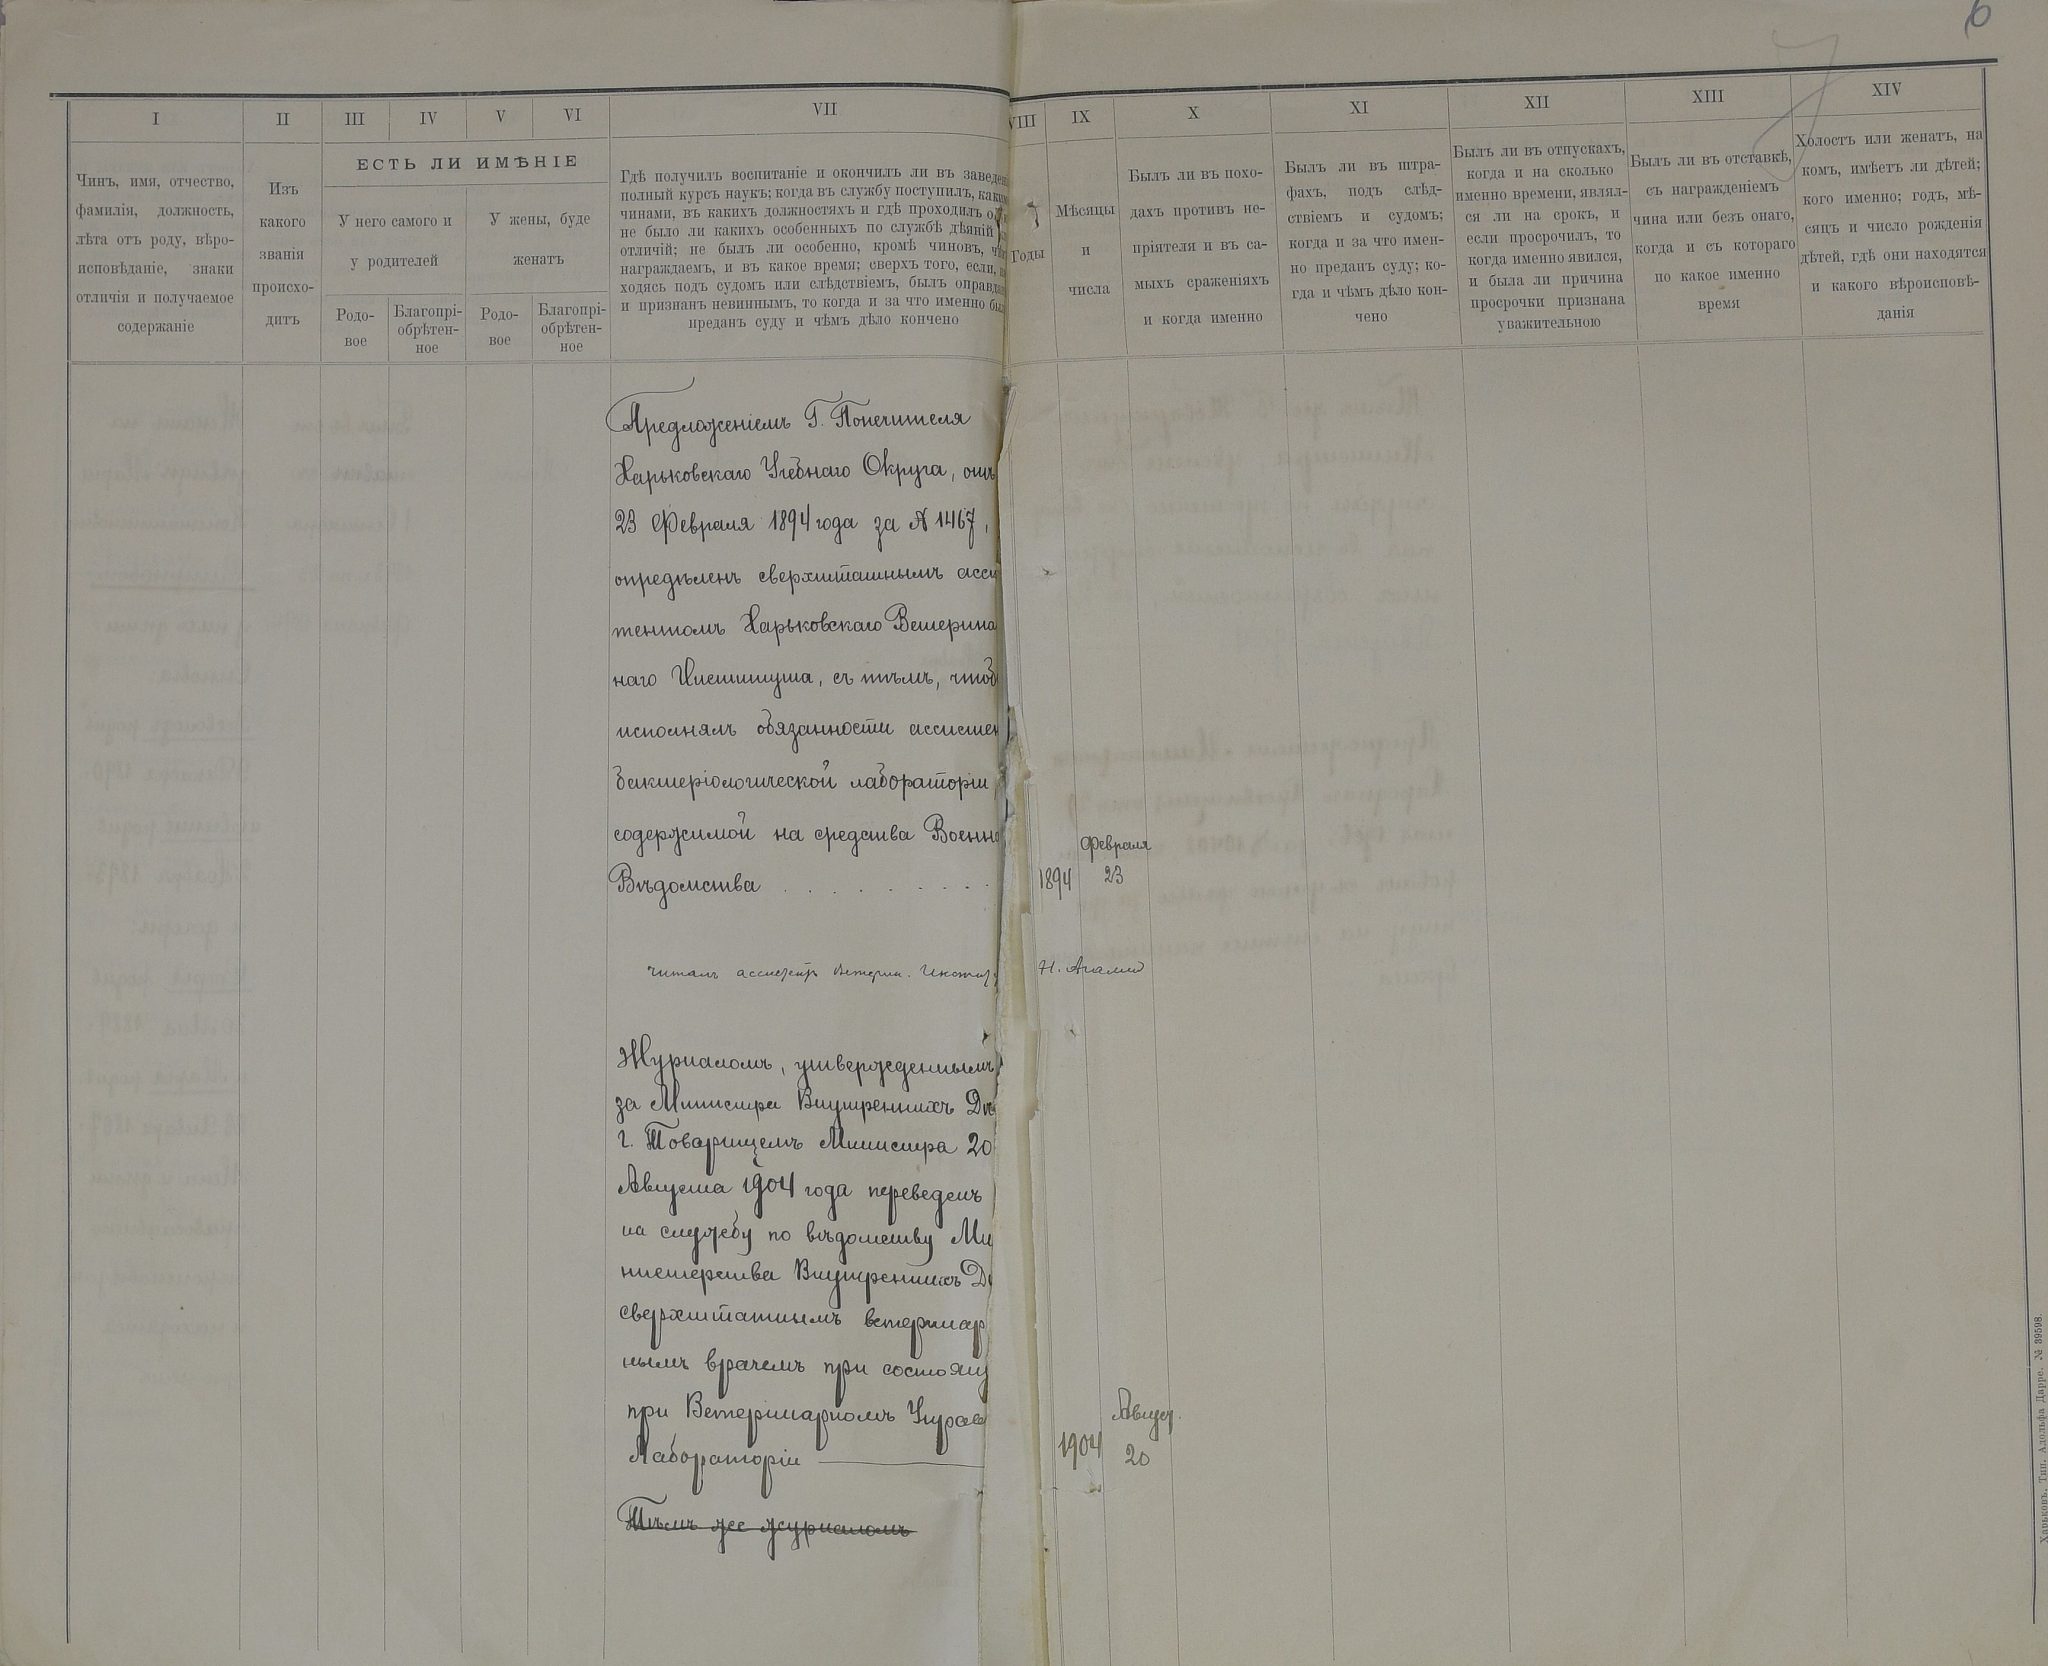 6
7
I
II
III
IV
V
VI
VII
VIII
IX
X
XI
XII
XIII
XIV
Чинъ, имя, отчество,
фамилія, должность,
лѣта отъ роду, вѣро-
исповѣданіе, знаки
отличія и получаемое
содержаніе
Изъ
какого
званія
происхо-
дитъ
ЕСТЬ ЛИ ИМѢНІЕ
У него самого и
у родителей
У жены, буде
женатъ
Родо-
вое
Благопрі-
обрѣтен-
ное
Родо-
вое
Благопрі-
обрѣтен-
ное
Гдѣ получилъ воспитаніе и окончилъ ли въ заведен
полный курсъ наукъ; когда въ службу поступилъ, каким
чинами, въ какихъ должностяхъ и гдѣ проходилъ о
не было ли какихъ особенныхъ по службѣ дѣяній
отличій; не былъ ли особенно, кромѣ чиновъ, ч
награждаемъ, и въ какое время; сверхъ того, если, н
ходясь подъ судомъ или слѣдствіемъ, былъ оправда
и признанъ невиннымъ, то когда и за что именно был
преданъ суду и чѣмъ дѣло кончено
Годы
Мѣсяцы
и
числа
Былъ ли въ похо-
дахъ противъ не-
пріятеля и въ са-
мыхъ сраженіяхъ
и когда именно
Былъ ли въ штра-
фахъ, подъ слѣд-
ствіемъ и судомъ;
когда и за что имен-
но преданъ суду; ко-
гда и чѣмъ дѣло кон-
чено
Былъ ли въ отпускахъ,
когда и на сколько
именно времени, являл-
ся ли на срокъ, и
если просрочилъ, то
когда именно явился,
и была ли причина
просрочки признана
уважительною
Былъ ли въ отставкѣ,
съ награжденіемъ
чина или безъ онаго,
когда и съ котораго
по какое именно
время
Холостъ или женатъ, на
комъ, имѣетъ ли дѣтей;
кого именно; годъ, мѣ-
сяцъ и число рожденія
дѣтей, гдѣ они находятся
и какого вѣроисповѣ-
данія
Предложеніемъ Г. Попечителя
Харьковскаго Учебнаго Округа, отъ
23 Февраля 1894 года за № 1467,
опредѣленъ сверхштатнымъ асси
тентомъ Харьковскаго Ветерина
наго Института, съ тѣмъ, чтоб
исполнялъ обязанности ассистен
бактеріологической лабораторіи
содержимой на средства Военно
Вѣдомства . . . . . . . . 1894 Февраля 23
Читалъ ассистентъ Ветерин. Инстит
Журналомъ, утвержденнымъ
за Министра Внутреннихъ Дѣ
г. Товарищемъ Министра 20
Августа 1904 года переведенъ
на службу по вѣдомству Ми
нистерства Внутреннихъ Д
сверхштатнымъ ветеринар
нымъ врачемъ при состоящ
при Ветеринарномъ Управ
Лабораторіи 1904 Август. 20
Тѣмъ же журналомъ
Харьковъ. Тип. Адольфа Дарре. № 39598.